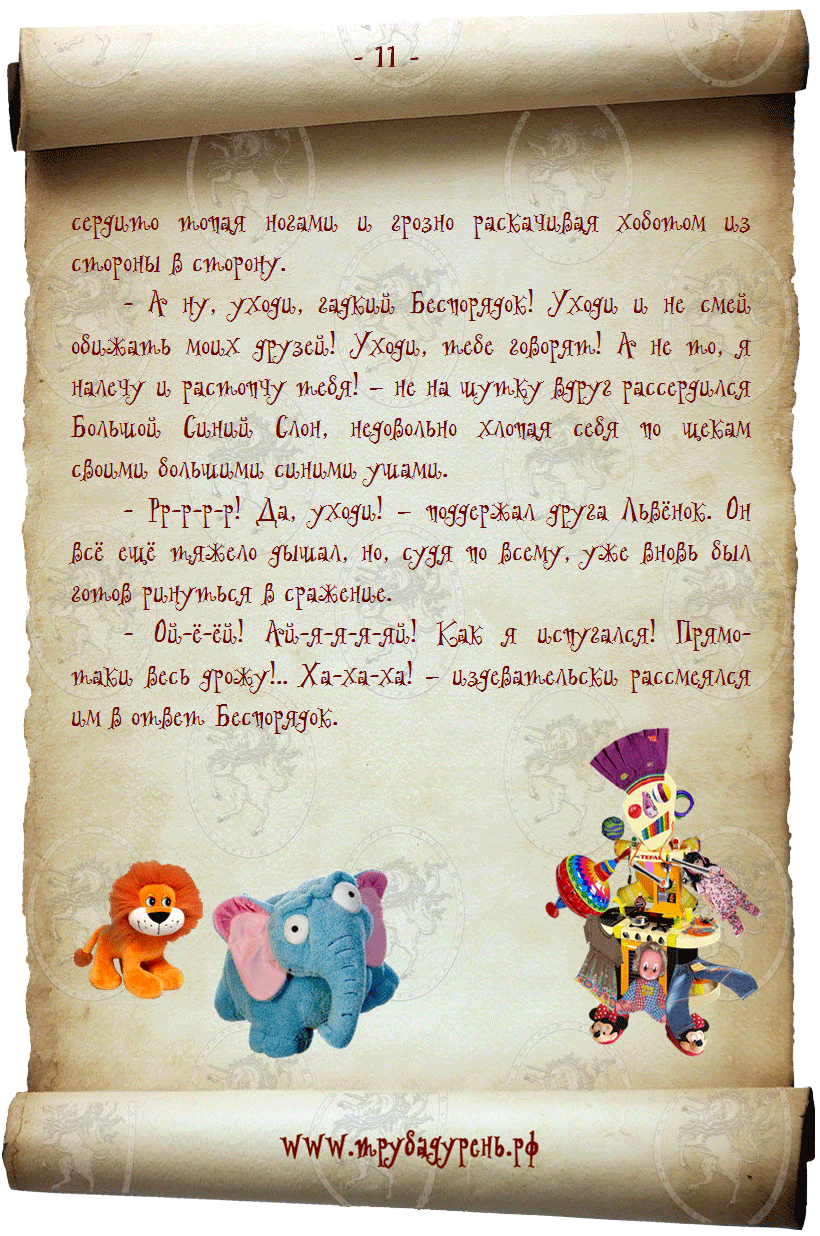 - 11 -
сердито топая ногами и грозно раскачивая хоботом из
стороны в сторону.
- А ну, уходи, гадкий Беспорядок! Уходи и не смей
обижать моих друзей! Уходи, тебе говорят! А не то, я
налечу и растопчу тебя! – не на шутку вдруг рассердился
Большой Синий Слон, недовольно хлопая себя по щекам
своими большими синими ушами.
- Рр-р-р-р! Да, уходи! – поддержал друга Львёнок. Он
всё ещё тяжело дышал, но, судя по всему, уже вновь был
готов ринуться в сражение.
- Ой-ё-ёй! Ай-я-я-я-яй! Как я испугался! Прямо-
таки весь дрожу!.. Ха-ха-ха! – издевательски рассмеялся
им в ответ Беспорядок.
TEFAL
www.трубадурень.рф